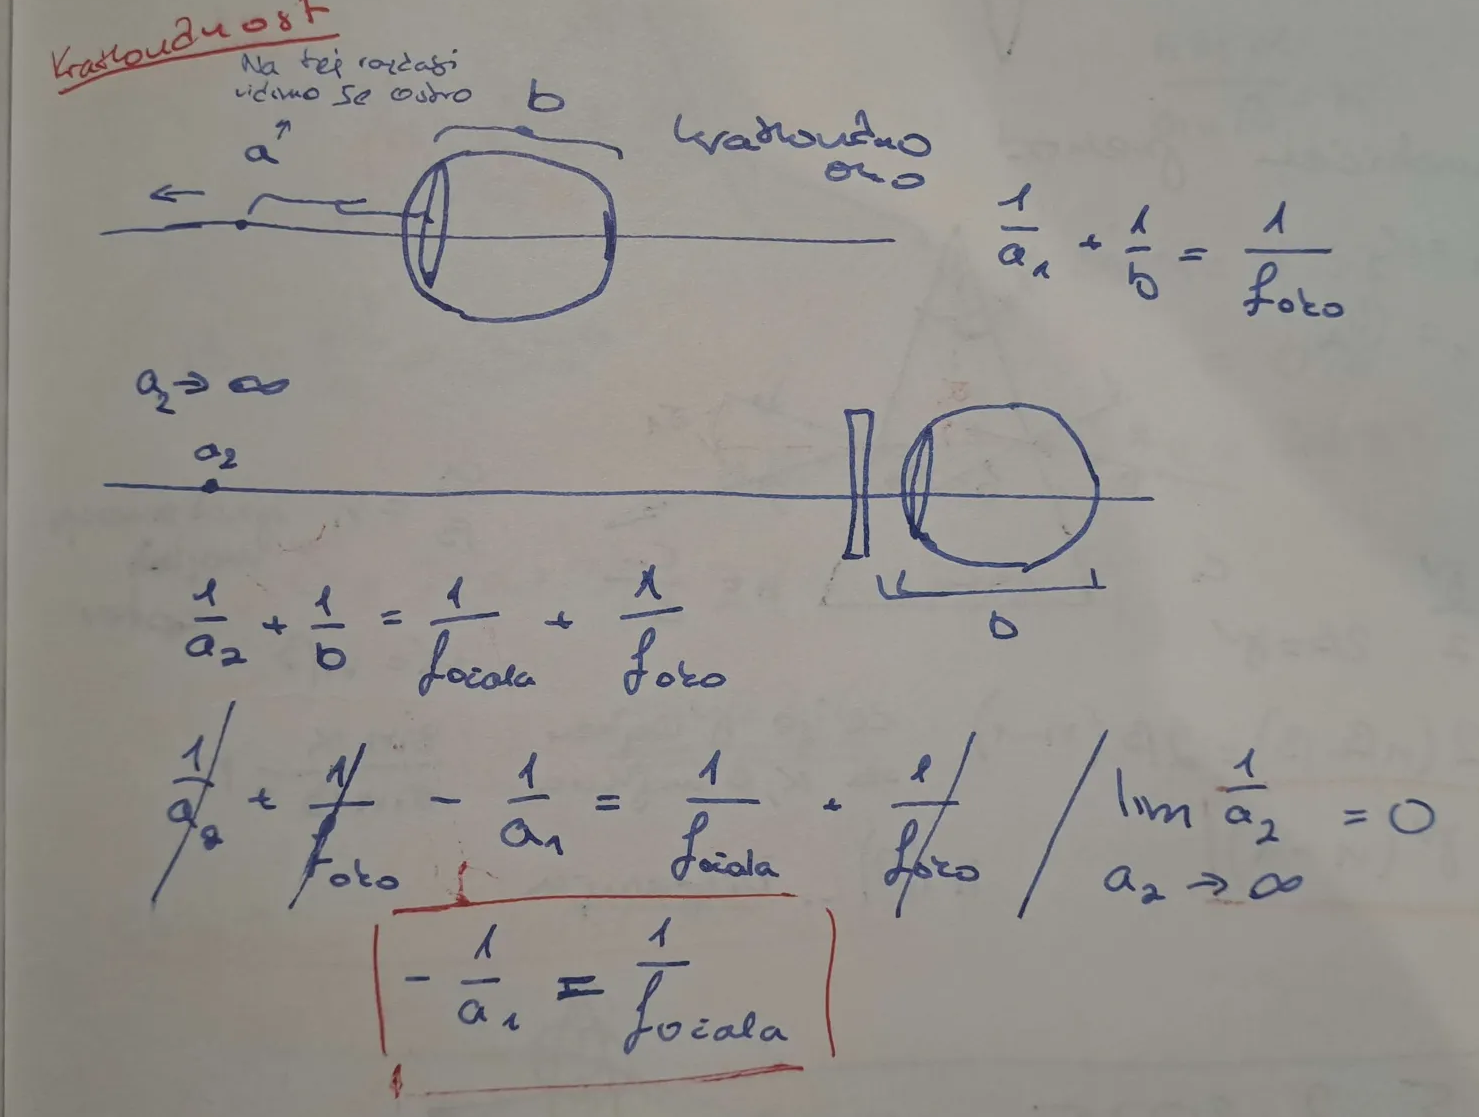 Kratkovidnost
Na tej razdalji
vidimo še ostro
a
b
kratkovidno
oko
1/a₁ + 1/b = 1/f oko
a₂ → ∞
a₂
b
1/a₂ + 1/b = 1/f očala + 1/f oko
1/a₂ + 1/f oko - 1/a₁ = 1/f očala + 1/f oko / lim 1/a₂ = 0
a₂ → ∞
- 1/a₁ = 1/f očala